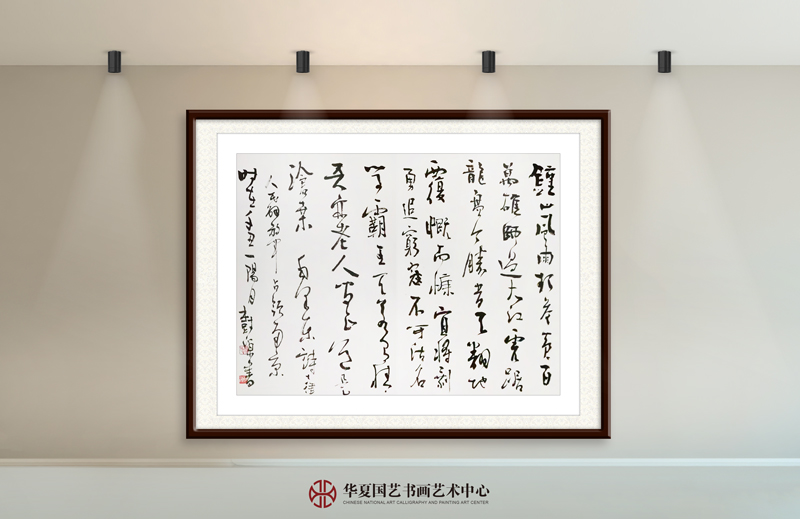 鐘山風雨起蒼黃百
萬雄師過大江虎踞
龍盤今勝昔天翻地
覆慨而慷宜將剩
勇追窮寇不可沽名
學霸王天若有情
天亦老人間正道是
滄桑 毛澤東詩七律
人民解放軍占領南京
時在辛丑一陽月 書
华夏国艺书画艺术中心
CHINESE NATIONAL ART CALLIGRAPHY AND PAINTING ART CENTER